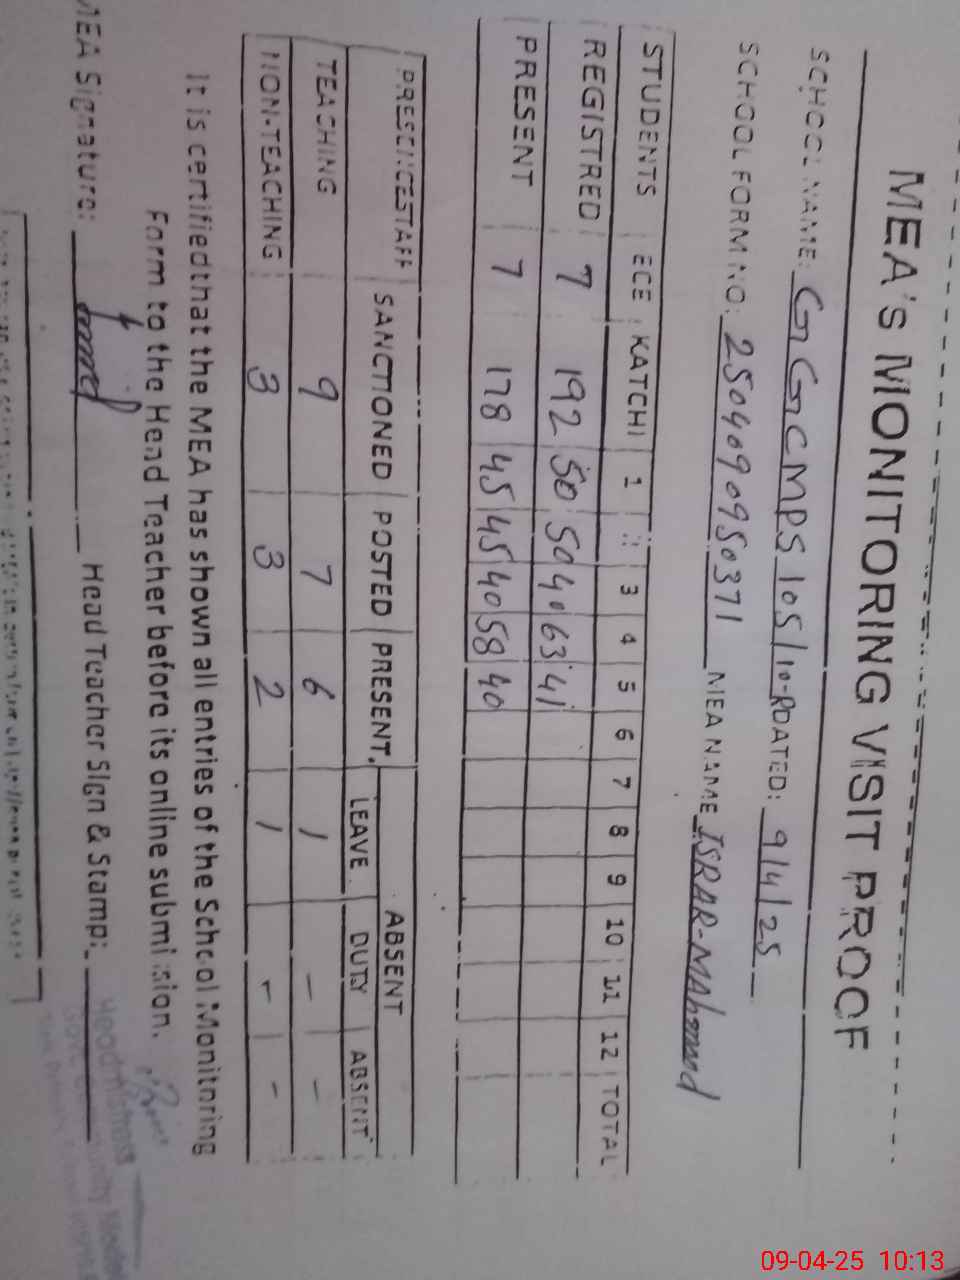 MEA's MONITORING VISIT PROOF
SCHOOL NAME: GGCMPS 105/10-R DATED: 9/4/25
SCHOOL FORM NO: 2504090950371 MEA NAME ISRAR-MAhmood
STUDENTS ECE KATCHI 1 2 3 4 5 6 7 8 9 10 11 12 TOTAL
REGISTRED 7 192 50 50 40 63 41
PRESENT 7 178 45 45 40 58 40
PRESENCE STAFF SANCTIONED POSTED PRESENT ABSENT
LEAVE DUTY ABSENT
TEACHING 9 7 6 1 - -
NON-TEACHING 3 3 2 1 - -
It is certified that the MEA has shown all entries of the School Monitoring
Form to the Head Teacher before its online submission.
MEA Signature: Head Teacher Sign & Stamp:
Headmistress
09-04-25 10:13